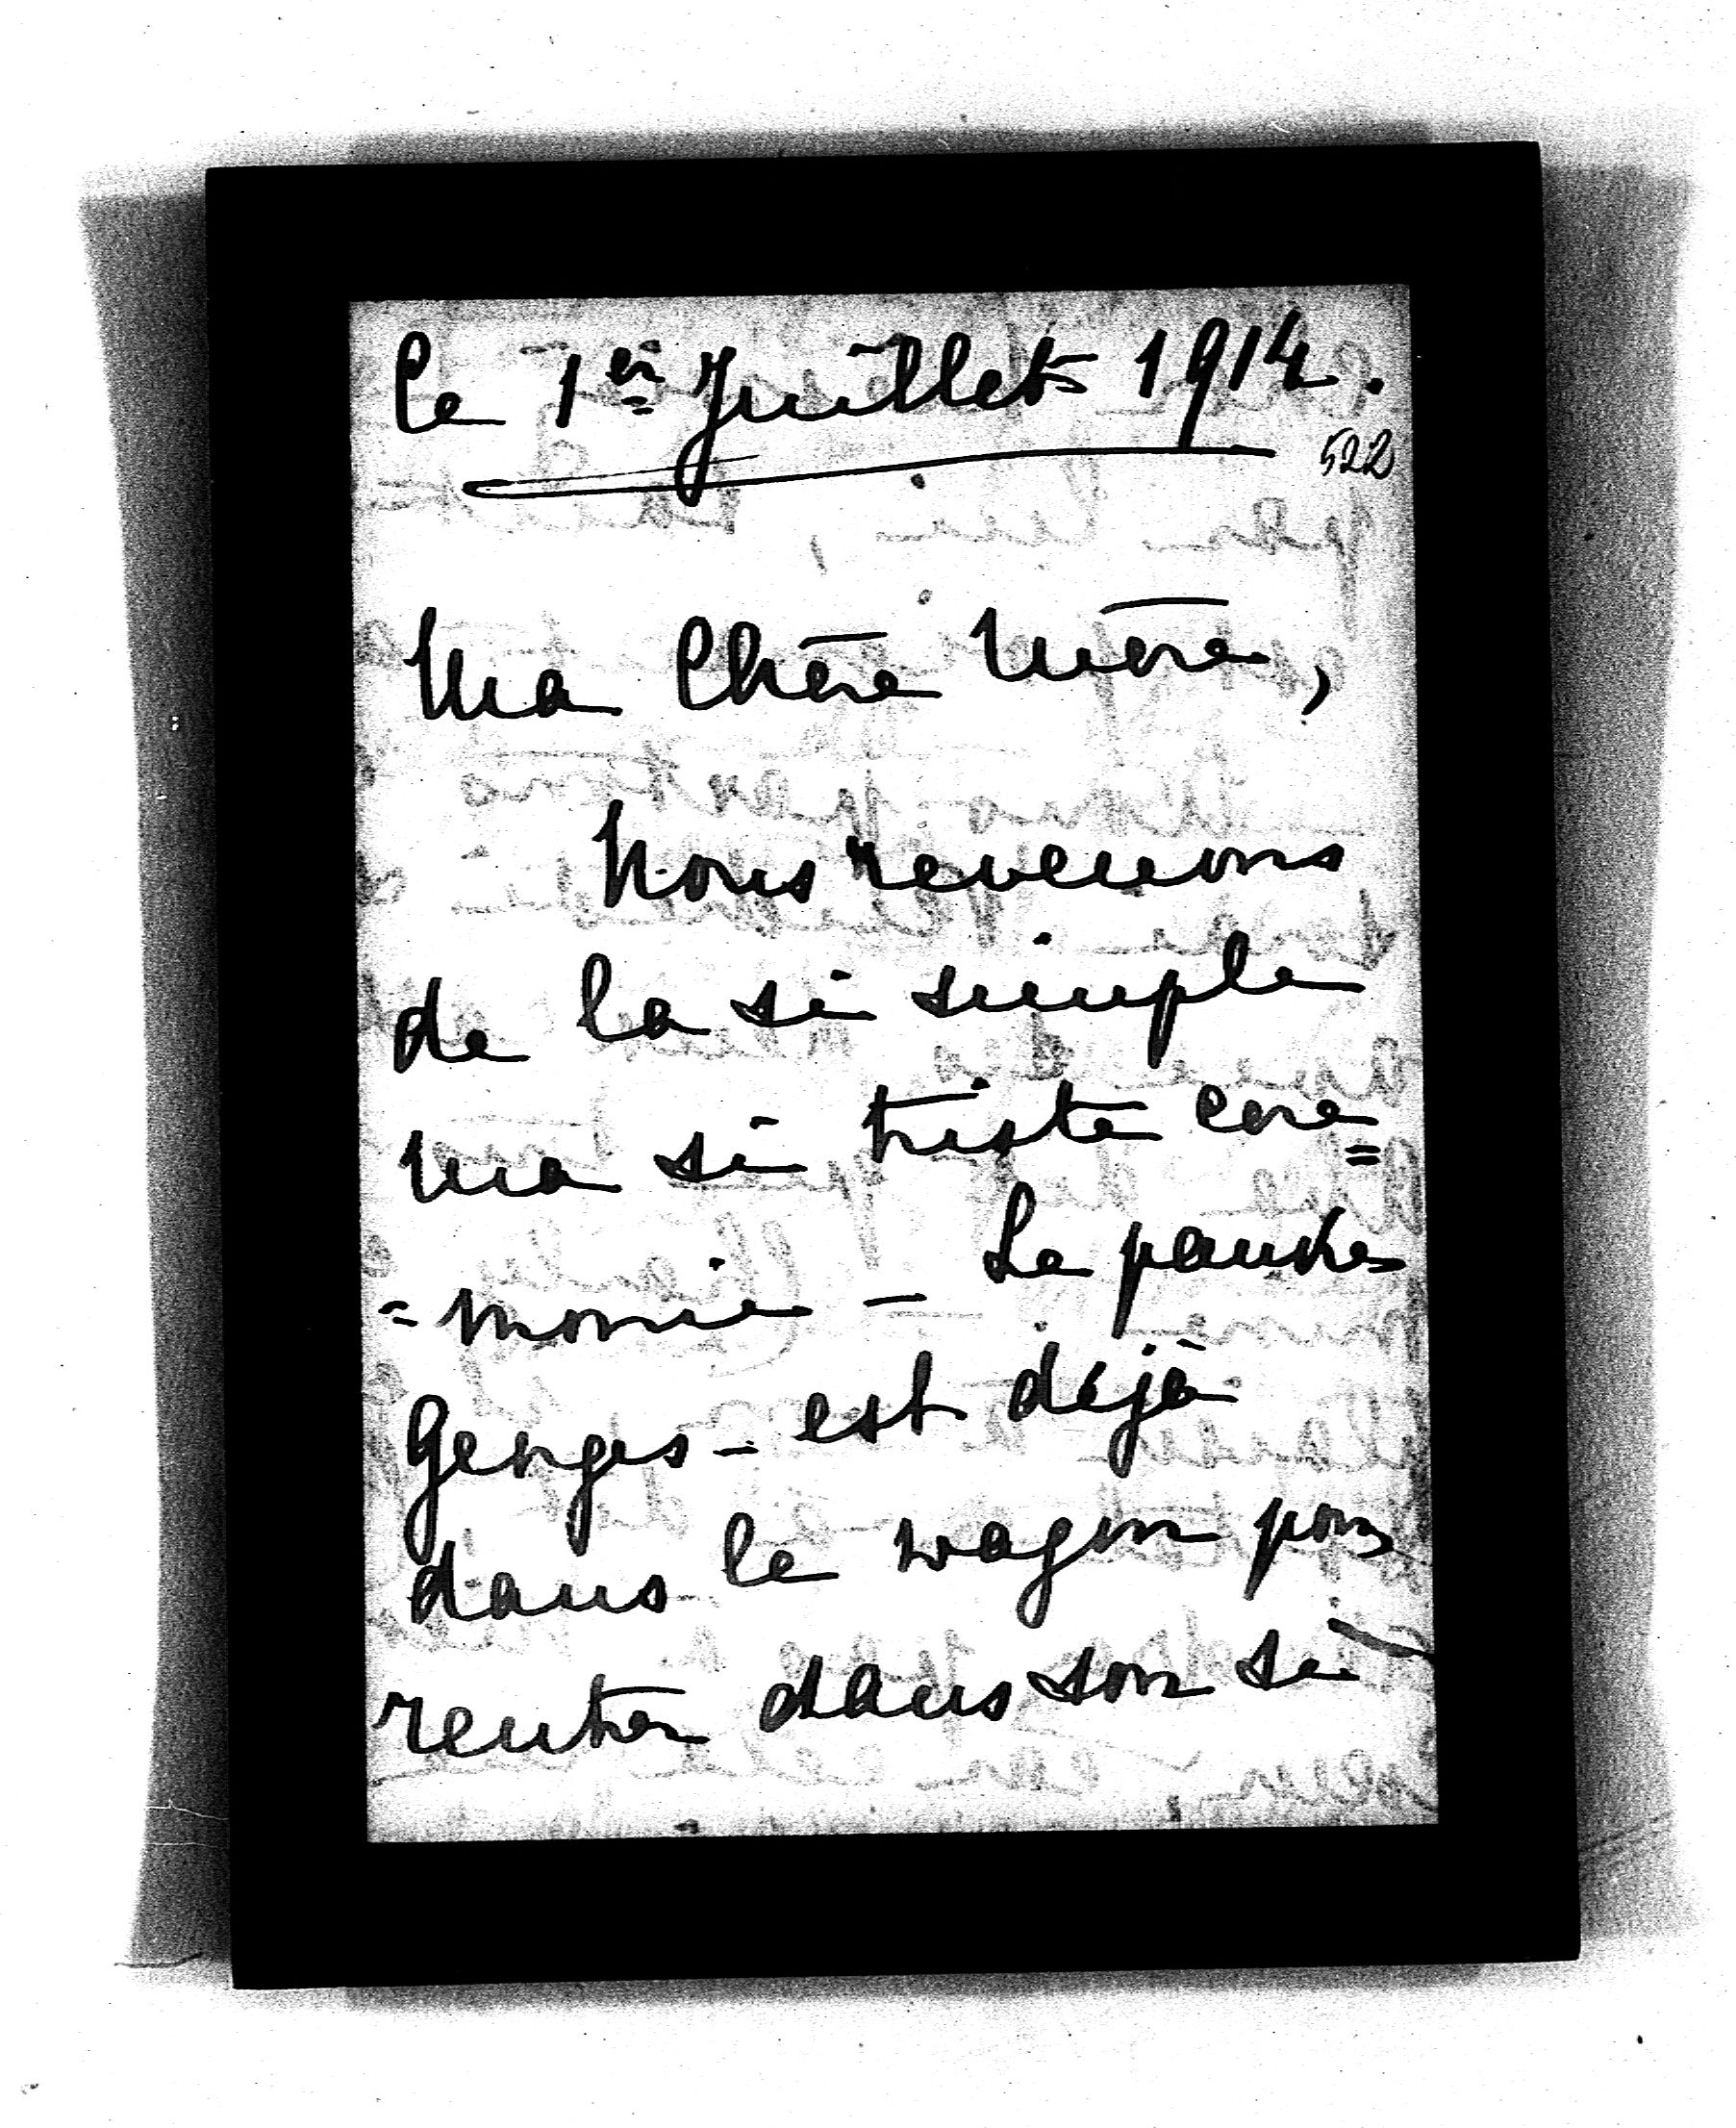 le 1er Juillet 1914.
522
Ma Chère Mère,
Nous revenons
de la si simple
ma si triste cere=
=monie - Le pauvre
Georges - est déjà
dans le wagon pour
rentrer dans son si